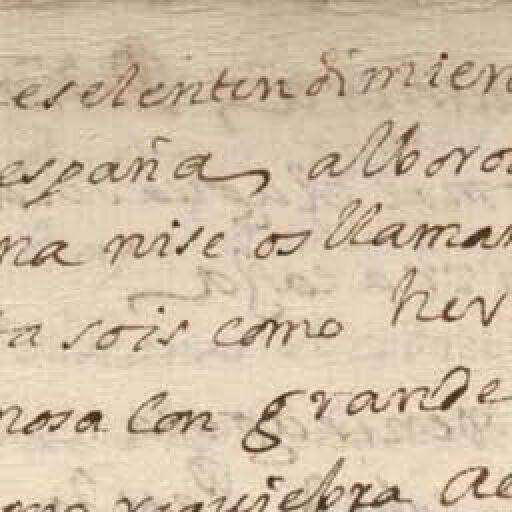 es el entendimien
españa, alboro
na nise os llaman
ta sois como her
mosa con grande
requiebra de